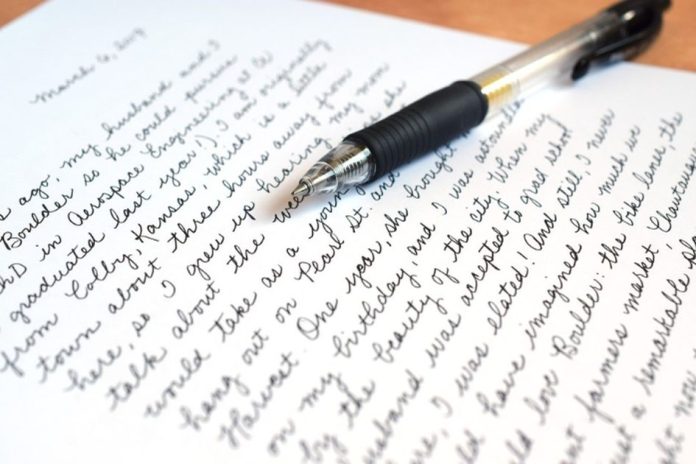 March 6, 2017
s ago, my husband and I
Boulder so he could pursue
PhD in Aerospace Engineering at CU
graduated last year!). I am originally
from Colby, Kansas, which is a little
town about three hours away from
here, so I grew up hearing my mom
talk about the she
would take as a young
hang out on Pearl St. and
Harvest. One year, she brought
on my birthday and I was astounded
by the beauty of the city. When my
husband was accepted to grad school
I was elated! And still I never
have imagined how much we
love Boulder: the bike lanes, the
farmers market, Chautauqua
a remarkable
right now